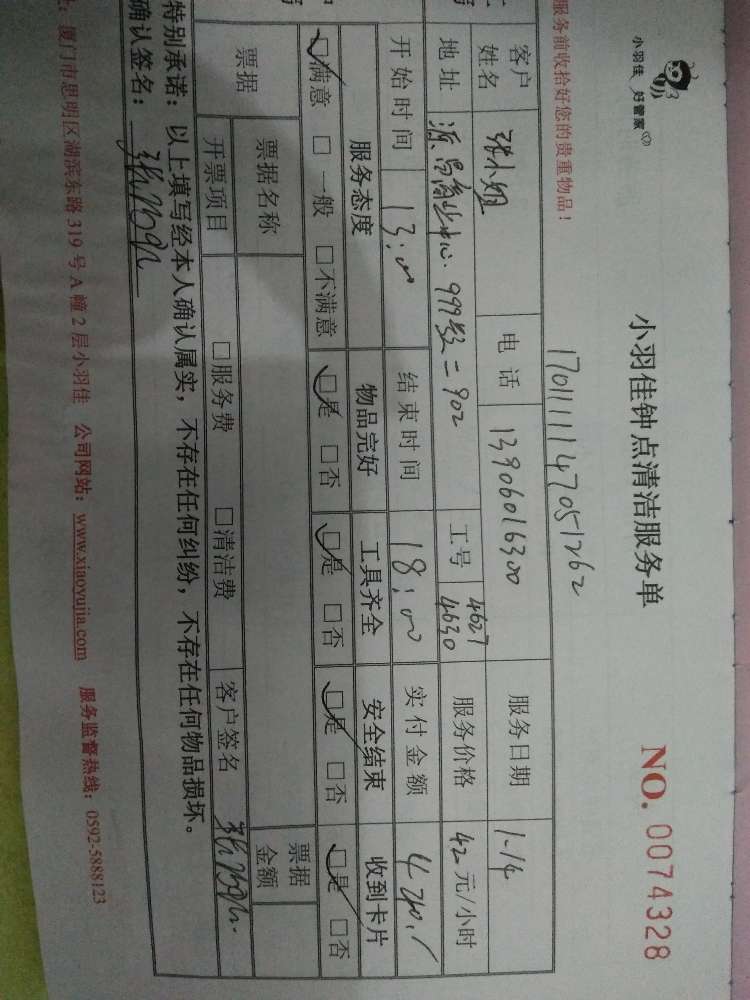 小羽佳 好管家
小羽佳钟点清洁服务单
NO. 0074328
服务前收拾好您的贵重物品！
1701111147051262
客户姓名 张小姐 电话 13906016300 服务日期 1-14
地址 源昌商业中心 999号二902 工号 4627 4630 服务价格 42元/小时
开始时间 13:00 结束时间 18:00 实付金额 420.
服务态度 物品完好 工具齐全 安全结束 收到卡片
□满意 □一般 □不满意 □是 □否 □是 □否 □是 □否 □是 □否
票据 票据名称 票据金额
开票项目 □服务费 □清洁费 客户签名
特别承诺：以上填写经本人确认属实，不存在任何纠纷，不存在任何物品损坏。
确认签名：
厦门市思明区湖滨东路319号A幢2层小羽佳 公司网站：www.xiaoyujia.com 服务监督热线：0592-5888123